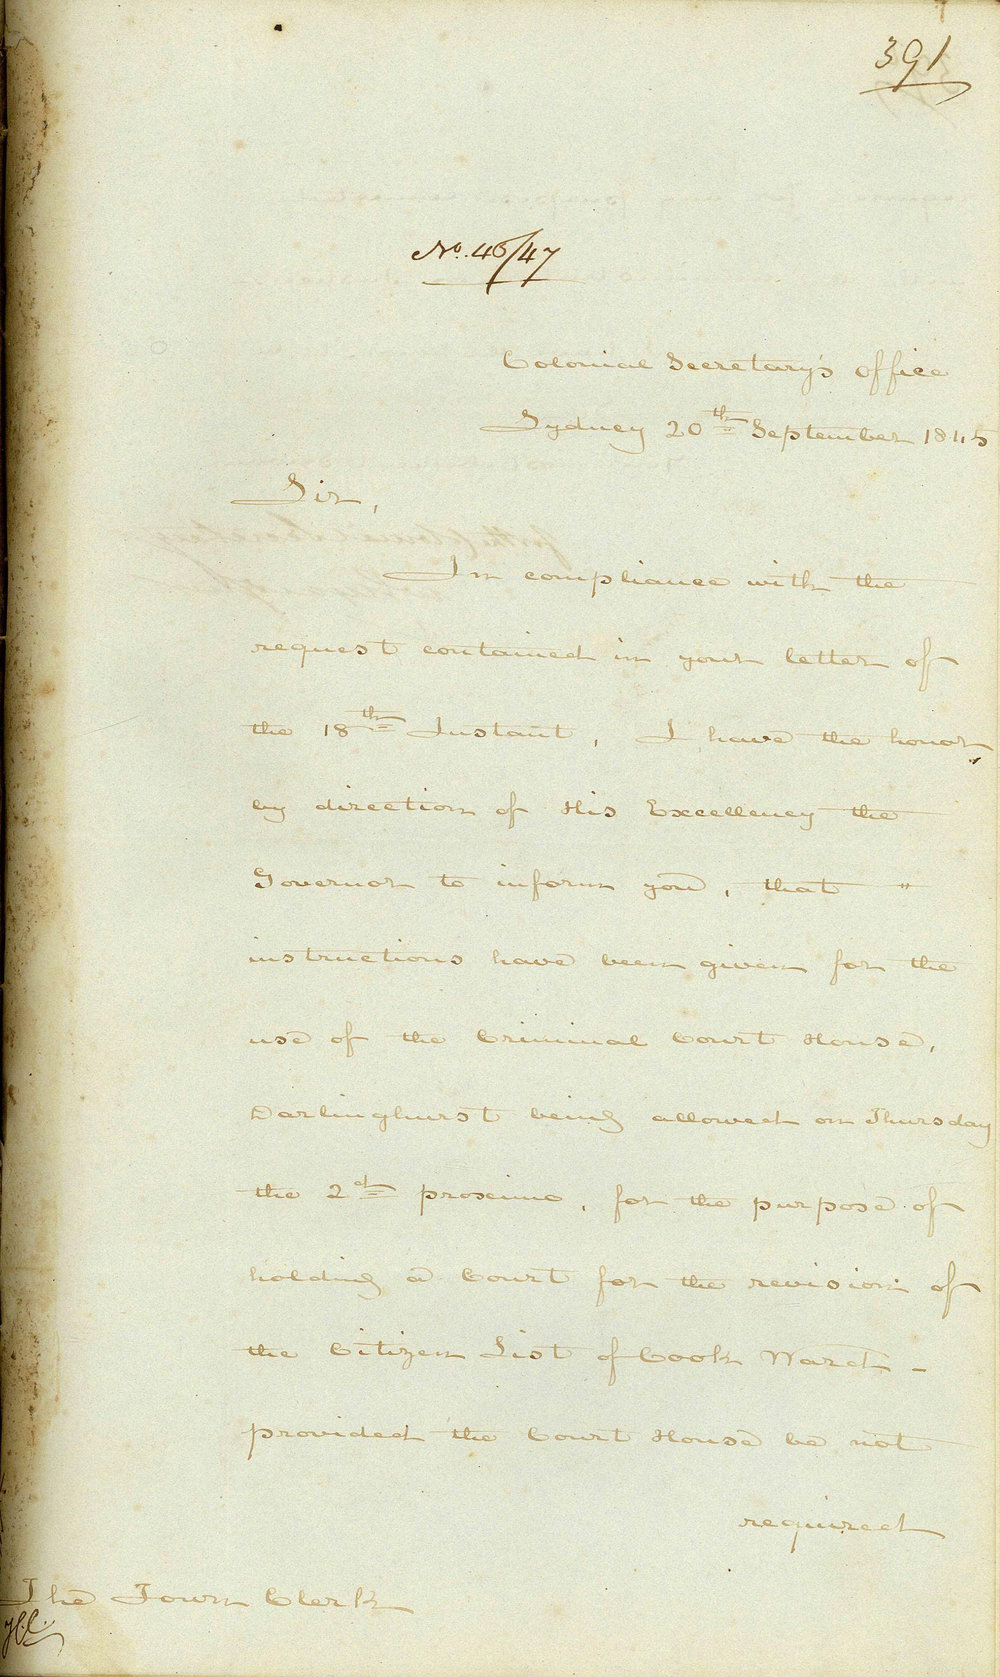 391
No. 46/47
Colonial Secretary's Office
Sydney 20th September 1845
Sir,
In compliance with the
request contained in your letter of
the 18th Instant, I have the honor,
by direction of His Excellency the
Governor to inform you, that "
instructions have been given for the
use of the Criminal Court House,
Darlinghurst being allowed on Thursday
the 2d proximo, for the purpose of
holding a Court for the revision of
the Citizen List of Cook Ward -
provided the Court House be not
required
The Town Clerk